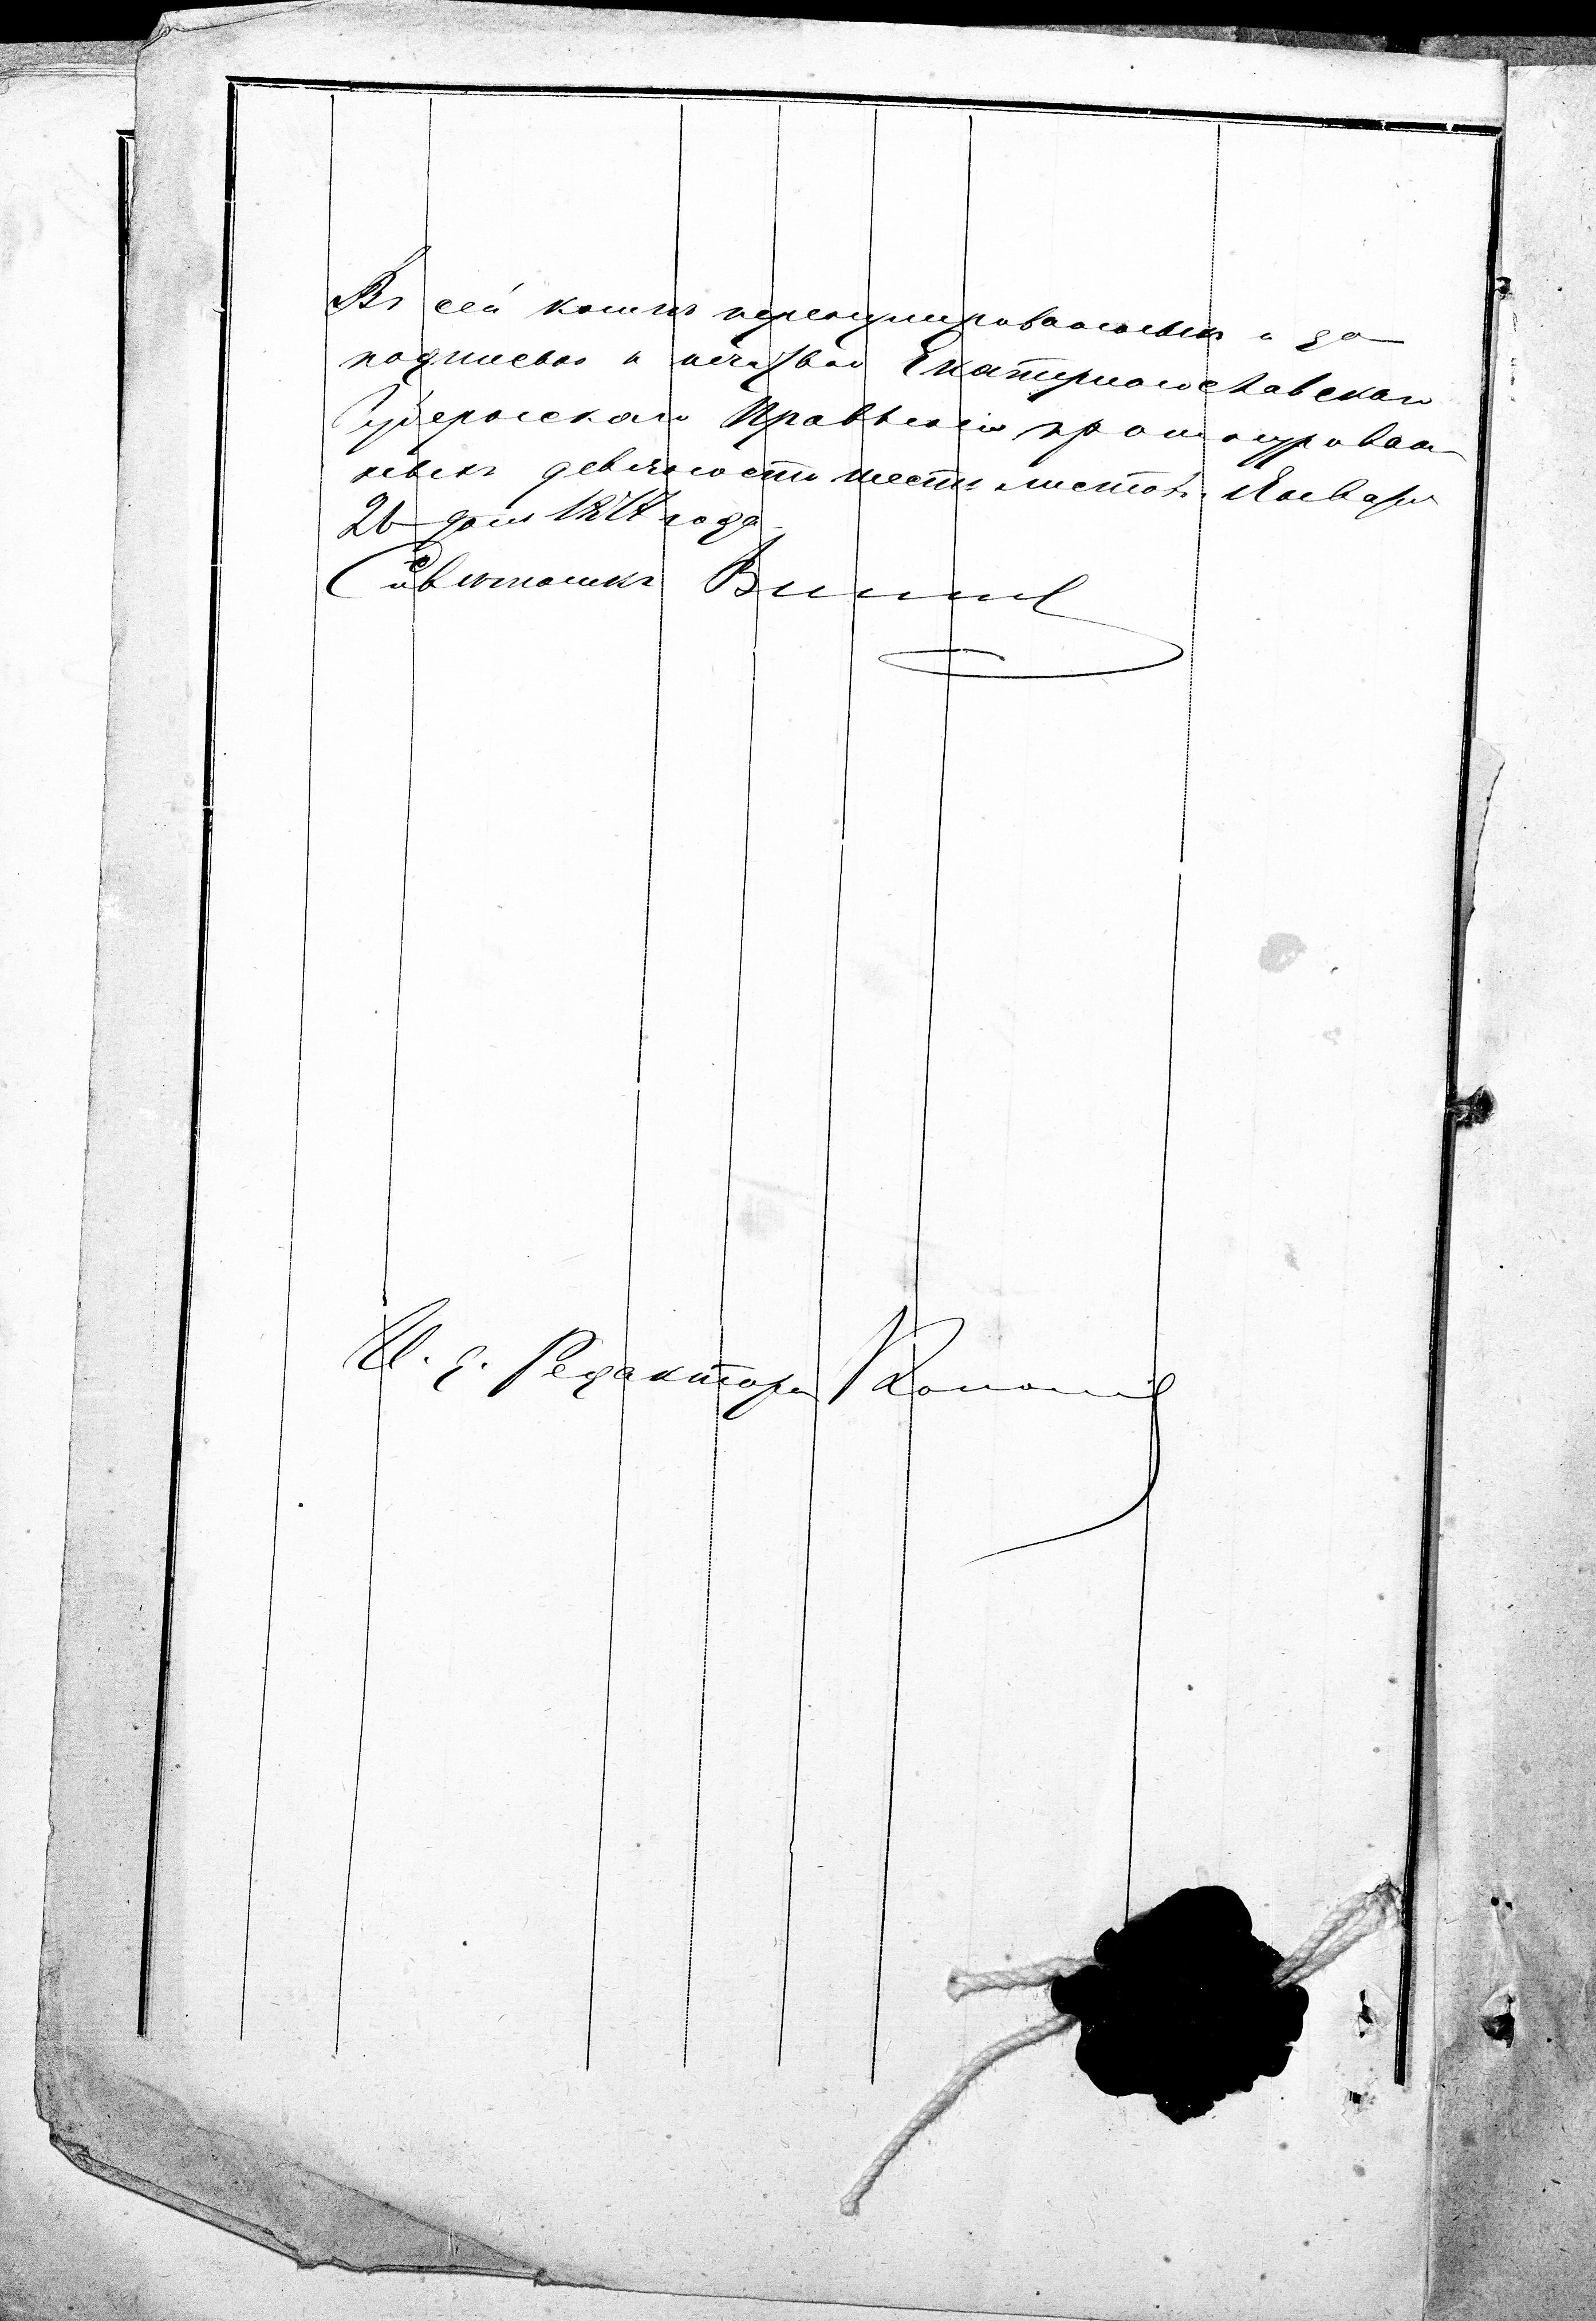 Въ сей книгѣ перенумерованныхъ и за
подписью и печатью Екатеринославскаго
Губернскаго Правленія прошнурован
ныхъ девяносто шесть листовъ. Января
26 дня 187 года.
Совѣтникъ
И. д. Редактора